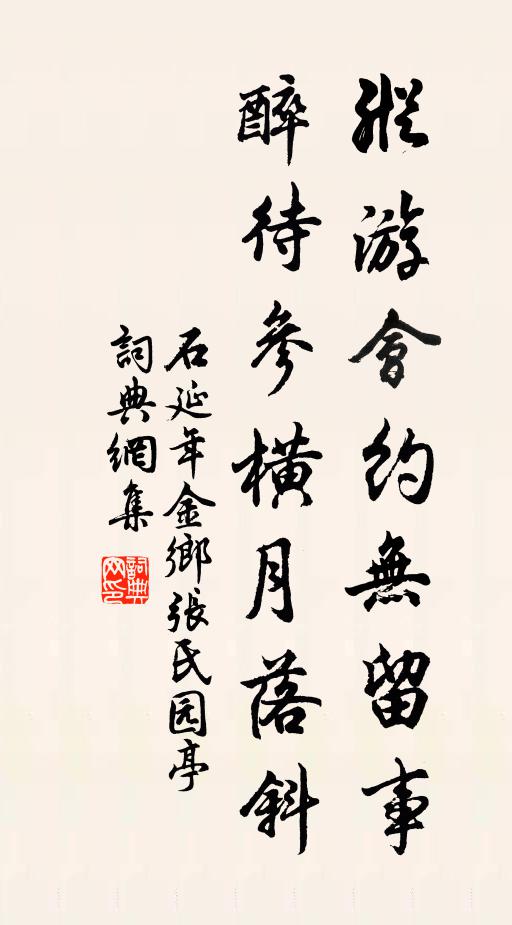 縱游會約無留事
醉待參橫月落斜
石延年金鄉張氏园亭
詞典網集
詞典网印